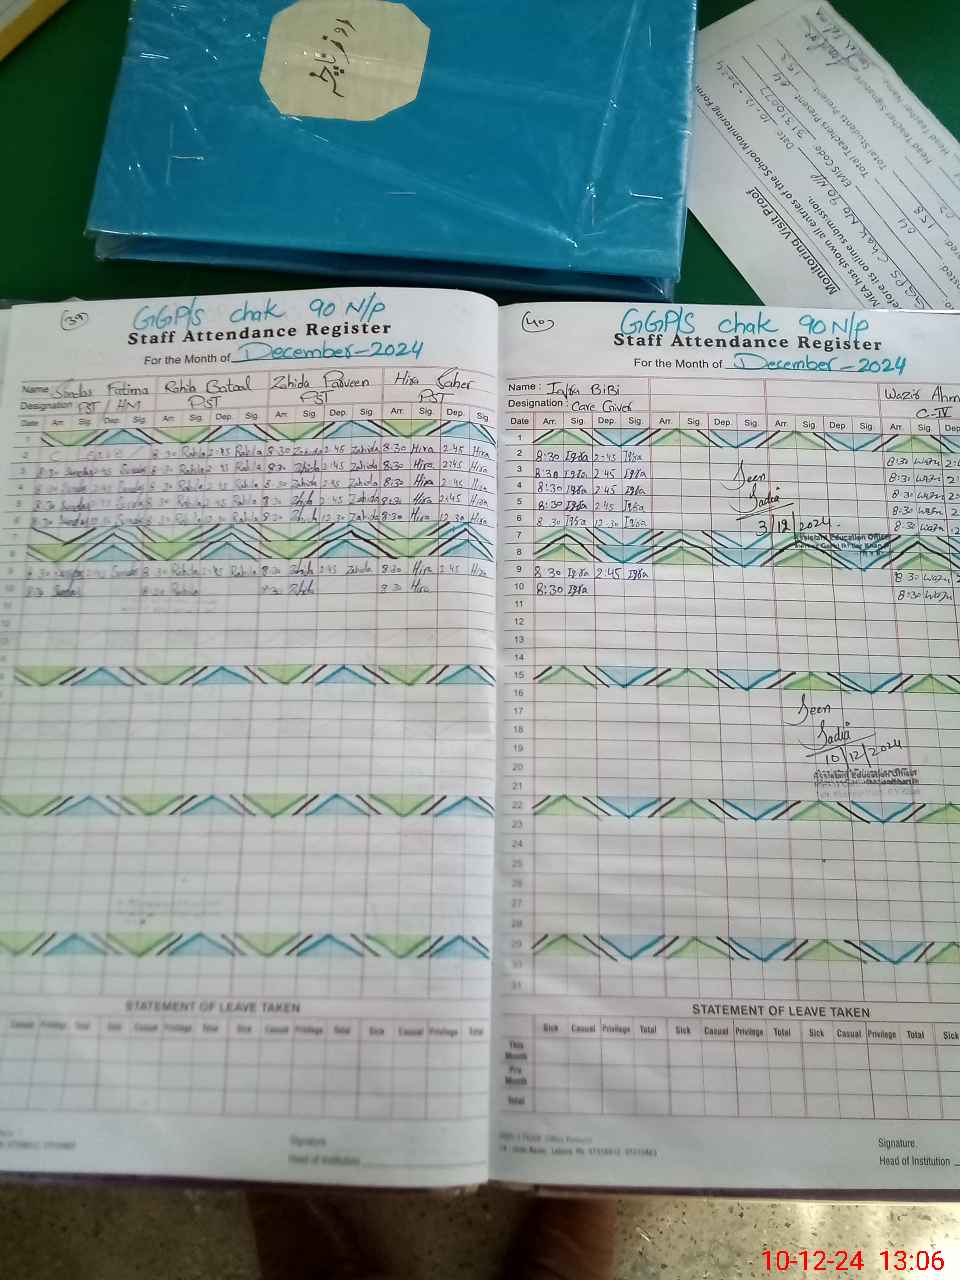 روزنامچہ
Monitoring Visit Proof
MEA has shown all entries of the School Monitoring Form
before its online submission.
GGPS Chak No 90 N/P
EMIS Code: 31310077 Date: 10.12.2024
Total Teachers Present: 04
Total Students Present: 153
Head Teacher Signature
Head Teacher Name:
39
GGP/S chak 90 N/p
Staff Attendance Register
For the Month of December-2024
Name: Sundas Fatima Rahila Batool Zahida Parveen Hira Saher
Designation: PST / HM PST PST PST
Date Arr. Sig. Dep. Sig. Arr. Sig. Dep. Sig. Arr. Sig. Dep. Sig. Arr. Sig. Dep. Sig.
1
2 8:30 Rahila 2:45 Rahila 8:30 Zahida 2:45 Zahida 8:30 Hira 2:45 Hira
3 8:30 Sundas 2:45 Sundas 8:30 Rahila 2:45 Rahila 8:30 Zahida 2:45 Zahida 8:30 Hira 2:45 Hira
4 8:30 Sundas 2:45 Sundas 8:30 Rahila 2:45 Rahila 8:30 Zahida 2:45 Zahida 8:30 Hira 2:45 Hira
5 8:30 Sundas 2:45 Sundas 8:30 Rahila 2:45 Rahila 8:30 Zahida 2:45 Zahida 8:30 Hira 2:45 Hira
6 8:30 Sundas 12:30 Sundas 8:30 Rahila 12:30 Rahila 8:30 Zahida 12:30 Zahida 8:30 Hira 12:30 Hira
8
9 8:30 Sundas 2:45 Sundas 8:30 Rahila 2:45 Rahila 8:30 Zahida 2:45 Zahida 8:30 Hira 2:45 Hira
10 8:30 Sundas 8:30 Rahila 8:30 Zahida 8:30 Hira
11
12
13
STATEMENT OF LEAVE TAKEN
Casual Privilege Total Sick Casual Privilege Total Sick Casual Privilege Total Sick Casual Privilege Total
Signature
Head of Institution
40
GGP/S chak 90 N/p
Staff Attendance Register
For the Month of December-2024
Name: Iqra BiBi Wazir Ahm
Designation: Care Giver C-IV
Date Arr. Sig. Dep. Sig. Arr. Sig. Dep. Sig. Arr. Sig. Dep. Sig. Arr. Sig. Dep.
1
2 8:30 Iqra 2:45 Iqra 8:30 Wazir
3 8:30 Iqra 2:45 Iqra 8:30 Wazir
4 8:30 Iqra 2:45 Iqra Seen 8:30 Wazir
5 8:30 Iqra 2:45 Iqra Sadia 8:30 Wazir
6 8:30 Iqra 12:30 Iqra 3/12/2024 8:30 Wazir
7 Assistant Education Officer
8
9 8:30 Iqra 2:45 Iqra 8:30 Wazir
10 8:30 Iqra 8:30 Wazir
11
12
13
14
15
16
17 Seen
18 Sadia
19 10/12/2024
20 Assistant Education Officer
21
22
23
24
25
26
27
28
29
30
31
STATEMENT OF LEAVE TAKEN
Sick Casual Privilege Total Sick Casual Privilege Total Sick Casual Privilege Total Sick
This Month
Pre Month
Total
Signature
Head of Institution
10-12-24 13:06